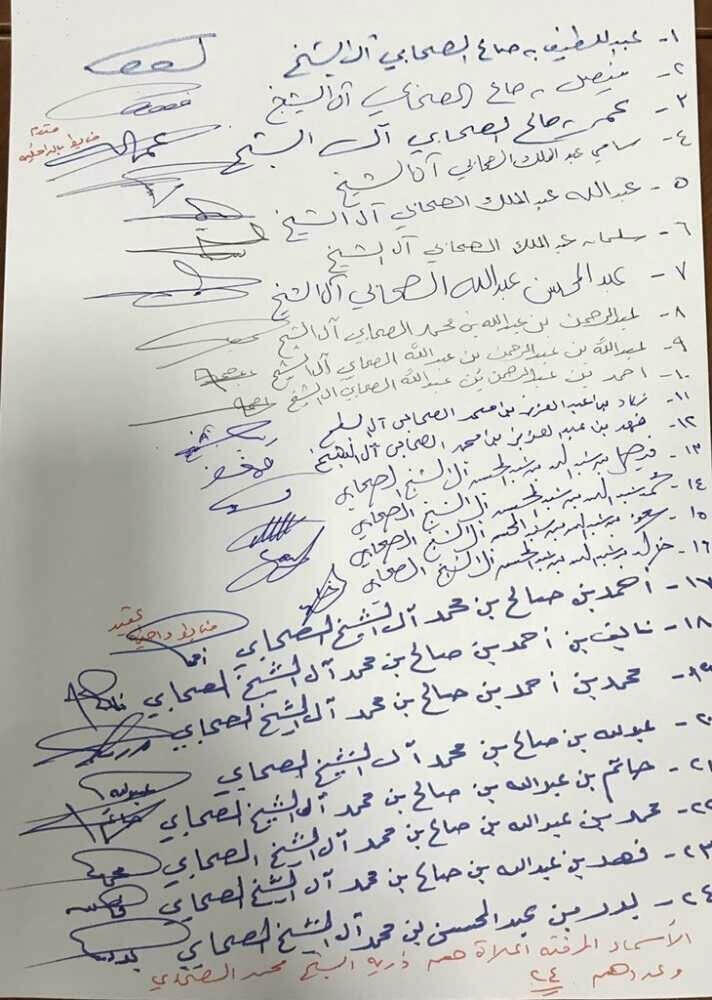 ١- عبداللطيف بن صالح الصحابي آل الشيخ
٢- فيصل بن صالح الصحابي آل الشيخ
٣- عمر بن صالح الصحابي آل الشيخ
مقدم
ضابط بالداخلية
٤- سامي عبدالملك الصحابي آل الشيخ
٥- عبدالله عبدالملك الصحابي آل الشيخ
٦- سلمان عبدالملك الصحابي آل الشيخ
٧- عبدالمحسن عبدالله الصحابي آل الشيخ
٨- عبدالرحمن بن عبدالله بن محمد الصحابي آل الشيخ
٩- عبدالله بن عبدالرحمن بن عبدالله الصحابي آل الشيخ
١٠- احمد بن عبدالرحمن بن عبدالله الصحابي آل الشيخ
١١- زياد بن عبدالعزيز بن محمد الصحابي آل الشيخ
١٢- فهد بن عبدالعزيز بن محمد الصحابي آل الشيخ
١٣- فيصل بن عبدالله بن عبدالمحسن آل الشيخ الصحابي
١٤- محمد بن عبدالله بن عبدالمحسن آل الشيخ الصحابي
١٥- سعود بن عبدالله بن عبدالمحسن آل الشيخ الصحابي
١٦- خالد بن عبدالله بن عبدالمحسن آل الشيخ الصحابي
١٧- أحمد بن صالح بن محمد آل الشيخ الصحابي
عقيد
ضابط داخلية
١٨- نايف بن أحمد بن صالح بن محمد آل الشيخ الصحابي
١٩- محمد بن أحمد بن صالح بن محمد آل الشيخ الصحابي
٢٠- عبدالله بن صالح بن محمد آل الشيخ الصحابي
عبدالله
٢١- حاتم بن عبدالله بن صالح بن محمد آل الشيخ الصحابي
حاتم
٢٢- محمد بن عبدالله بن صالح بن محمد آل الشيخ الصحابي
٢٣- فهد بن عبدالله بن صالح بن محمد آل الشيخ الصحابي
٢٤- بدر بن عبدالمحسن بن محمد آل الشيخ الصحابي
بدر
الأسماء المرفقه اعلاة هم ذرية الشيخ محمد الصحابي
وعددهم ٢٤